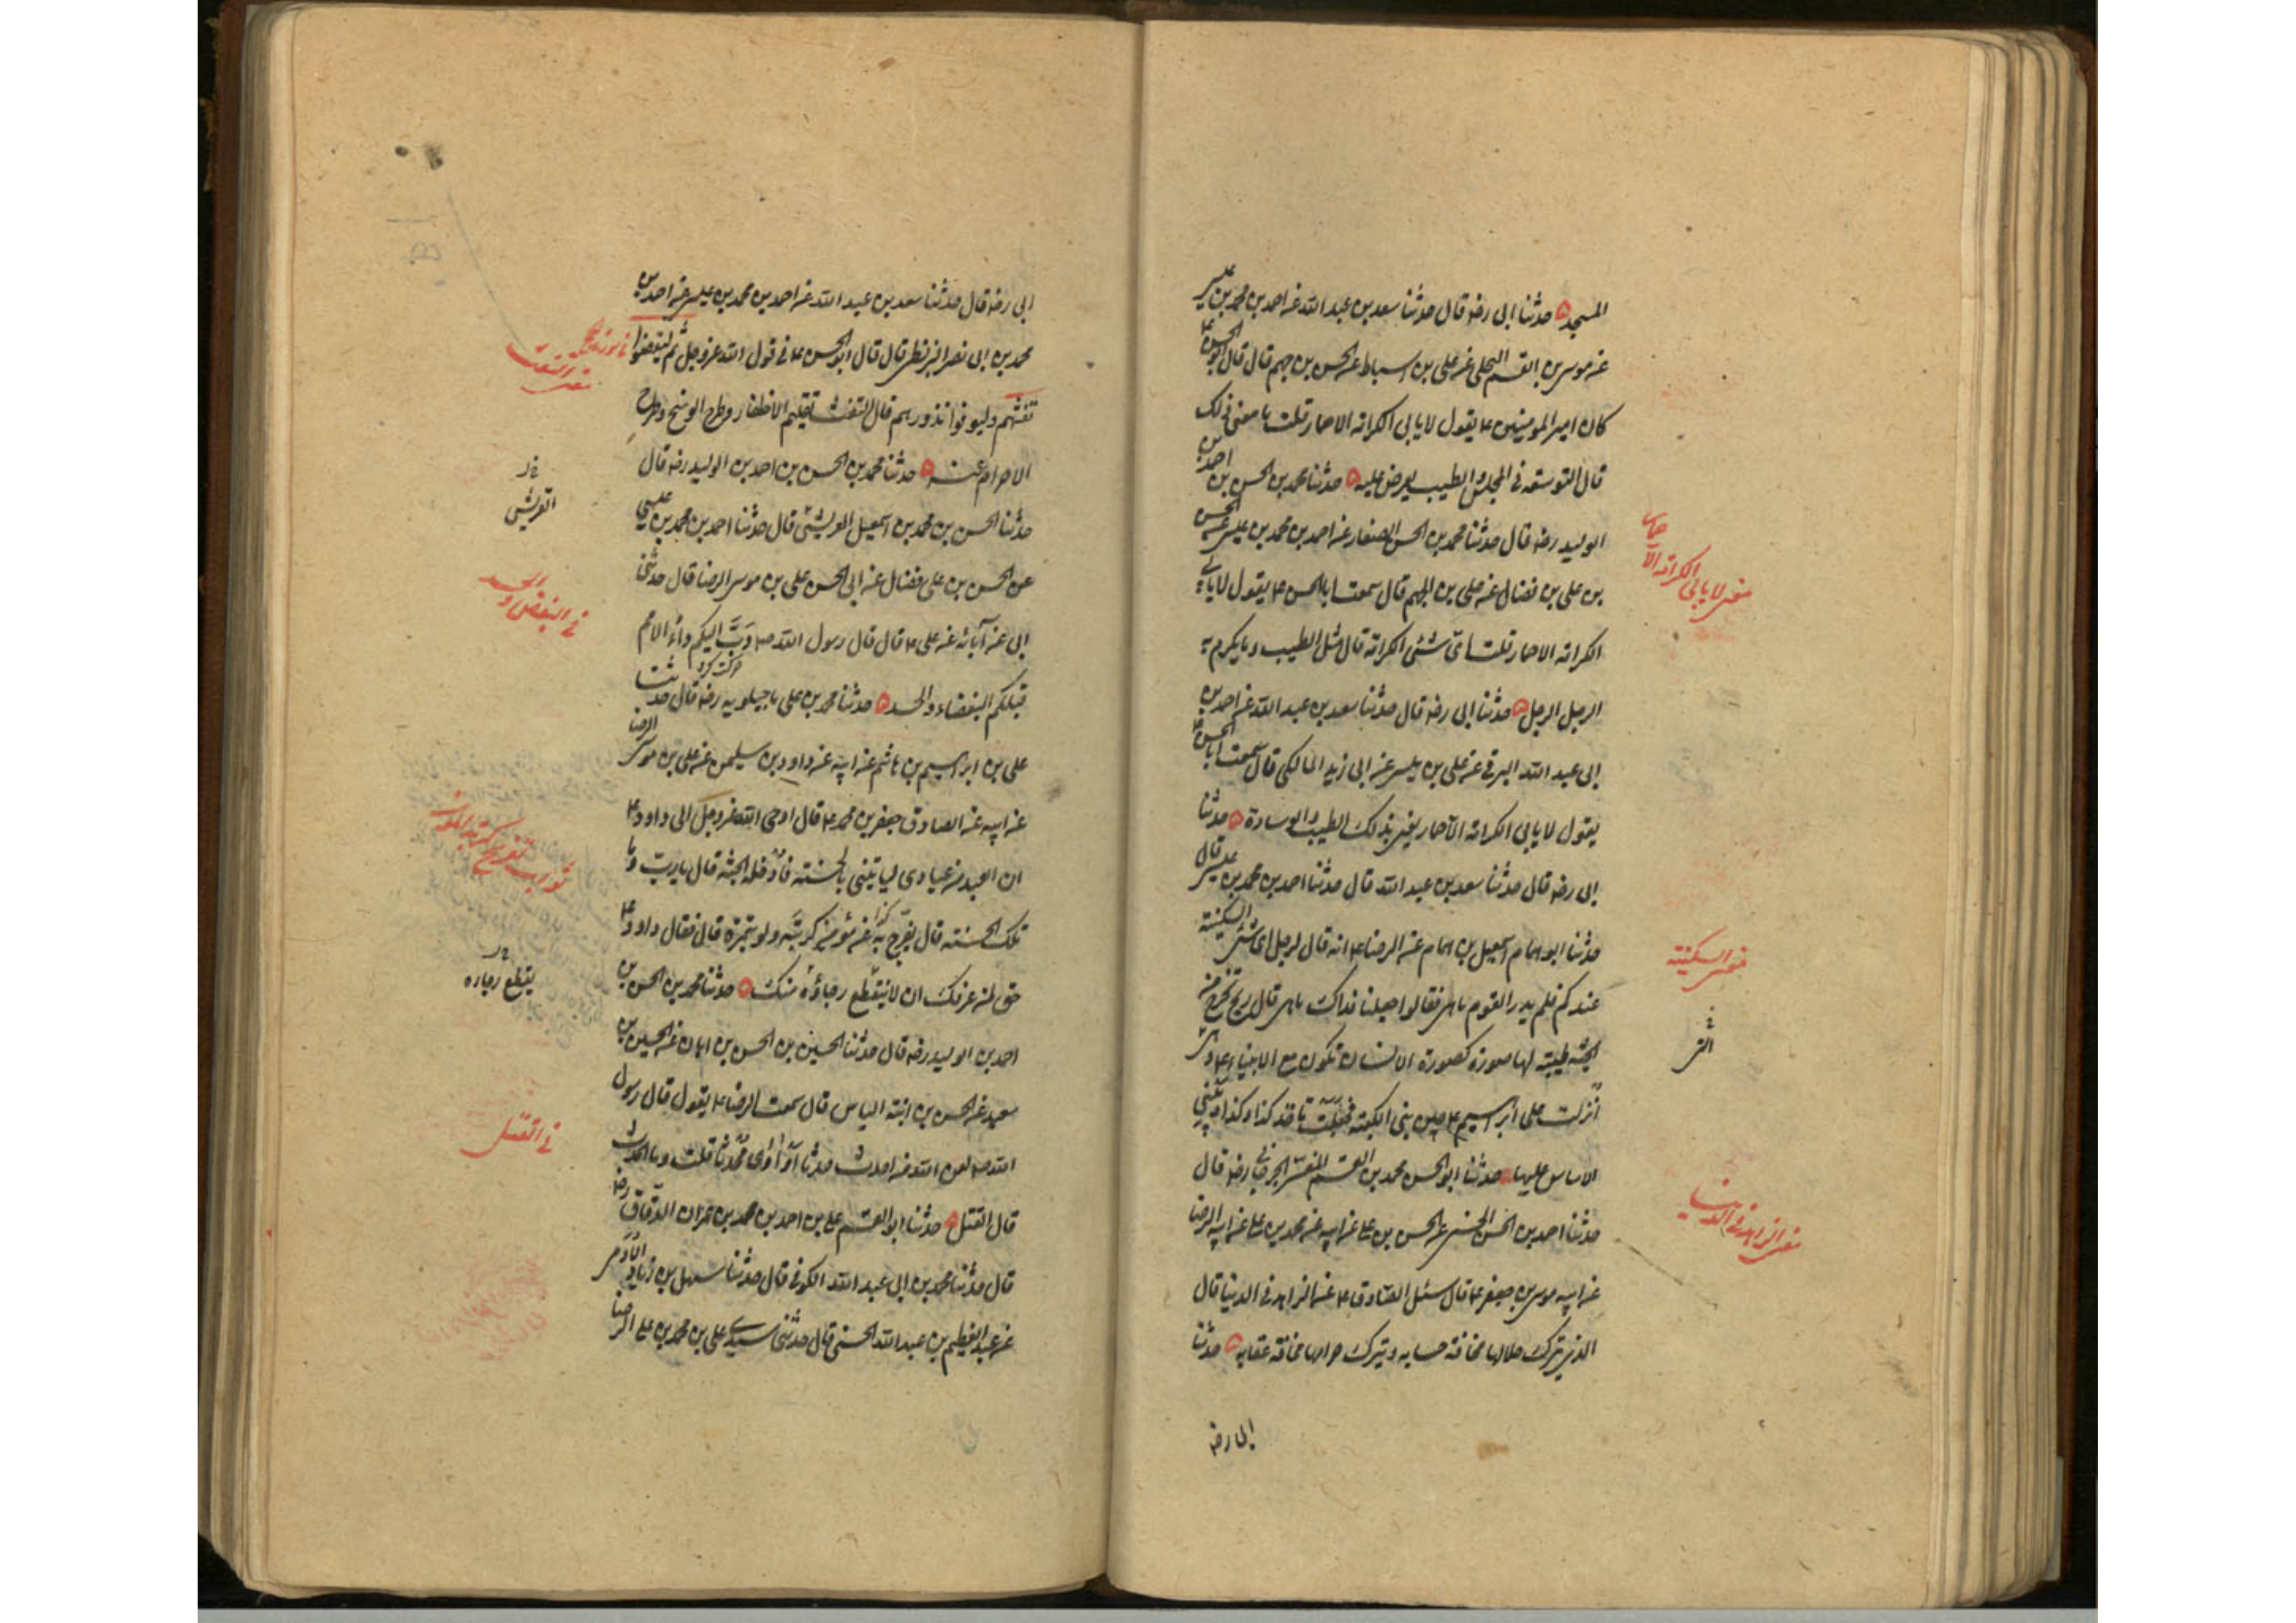 المسجد ۞ حدثنا ابى رضه قال حدثنا سعد بن عبد الله عن احمد بن محمد بن عيسى
عن موسى بن القسم البجلى عن على بن اسباط عن الحسن بن جهم قال قال ابو الحسن ع
كان امير المومنين ع يقول لا يابى الكرامة الا حمار قلت ما معنى ذلك
قال التوسعة فى المجلس والطيب يعرض عليه ۞ حدثنا محمد بن الحسن بن احمد بن
الوليد رضه قال حدثنا محمد بن الحسن الصفار عن احمد بن محمد بن عيسى عن الحسن
بن على بن فضال عن على بن الجهم قال سمعت ابا الحسن ع يقول لا يابى
الكرامة الا حمار قلت اى شئى الكرامة قال مثل الطيب وما يكرم به
الرجل الرجل ۞ حدثنا ابى رضه قال حدثنا سعد بن عبد الله عن احمد بن
ابى عبد الله البرقى عن على بن ميسر عن ابى زيد المالكى قال سمعت ابا الحسن ع
يقول لا يابى الكرامة الا حمار يعنى بذلك الطيب والوسادة ۞ حدثنا
ابى رضه قال حدثنا سعد بن عبد الله قال حدثنا احمد بن محمد بن عيسى قال
حدثنا ابو همام اسمعيل بن همام عن الرضا ع انه قال لرجل اى شئى السكينة
عندكم فلم يدر القوم ما هى فقالوا جعلنا فداك ما هى قال ريح تخرج من
الجنة طيبة لها صورة كصورة الانسان تكون مع الانبياء ع وهى
انزلت على ابرهيم ع حين بنى الكعبة فجعلت تاخذ كذا وكذا ويبنى
الاساس عليها ۞ حدثنا ابو الحسن محمد بن القسم المفسر الجرجانى رضه قال
حدثنا احمد بن الحسن الحسنى عن الحسن بن على عن ابيه عن محمد بن على عن ابيه الرضا
عن ابيه موسى بن جعفر ع قال سئل الصادق ع عن الزاهد فى الدنيا قال
الذى يترك حلالها مخافة حسابه ويترك حرامها مخافة عقابه ۞ حدثنا
ابى رضه
معنى لا يابى الكرامة الا حمار
معنى السكينة
معنى الزاهد فى الدنيا
ابى رضه قال حدثنا سعد بن عبد الله عن احمد بن محمد بن عيسى عن احمد بن
محمد بن ابى نصر البزنطى قال قال ابو الحسن ع فى قول الله عز وجل ثم ليقضوا
تفثهم وليوفوا نذورهم قال التفث تقليم الاظفار وطرح الوسخ وطرح
الاحرام عنه ۞ حدثنا محمد بن الحسن بن احمد بن الوليد رضه قال
حدثنا الحسن بن محمد بن اسمعيل القريشى قال حدثنا احمد بن محمد بن عيسى
عن الحسن بن على فضال عن ابى الحسن على بن موسى الرضا قال حدثنى
ابى عن آبائه عن على ع قال قال رسول الله ص دَبَّ اليكم داء الامم
قبلكم البغضاء والحسد ۞ حدثنا محمد بن على ماجيلويه رضه قال حدثنا
على بن ابرهيم بن هاشم عن ابيه عن داود بن سليمن عن على بن موسى الرضا
عن ابيه عن الصادق جعفر بن محمد ع قال اوحى الله عز وجل الى داود ع
ان العبد من عبادى لياتينى بالحسنة فادخله الجنة قال يا رب وما
تلك الحسنة قال يفرج به عن مؤمن كربته ولو بتمرة قال فقال داود ع
حق لمن عرفك ان لا ينقطع رجاؤه منك ۞ حدثنا محمد بن الحسن بن
احمد بن الوليد رضه قال حدثنا الحسين بن الحسن بن ابان عن الحسين بن
سعيد عن الحسن بن ابنة الياس قال سمعت الرضا ع يقول قال رسول
الله ص لعن الله من احدث حدثا او آوى محدثا قلت وما الحدث
قال القتل ۞ حدثنا ابو القسم على بن احمد بن محمد بن عمران الدقاق رضه
قال حدثنا محمد بن ابى عبد الله الكوفى قال حدثنا سهل بن زياد الآدمى
عن عبد العظيم بن عبد الله الحسنى قال حدثنى سيدى على بن محمد بن على الرضا
القريشى
فى البغض والحسد
ينقطع رجاره
فى القتل